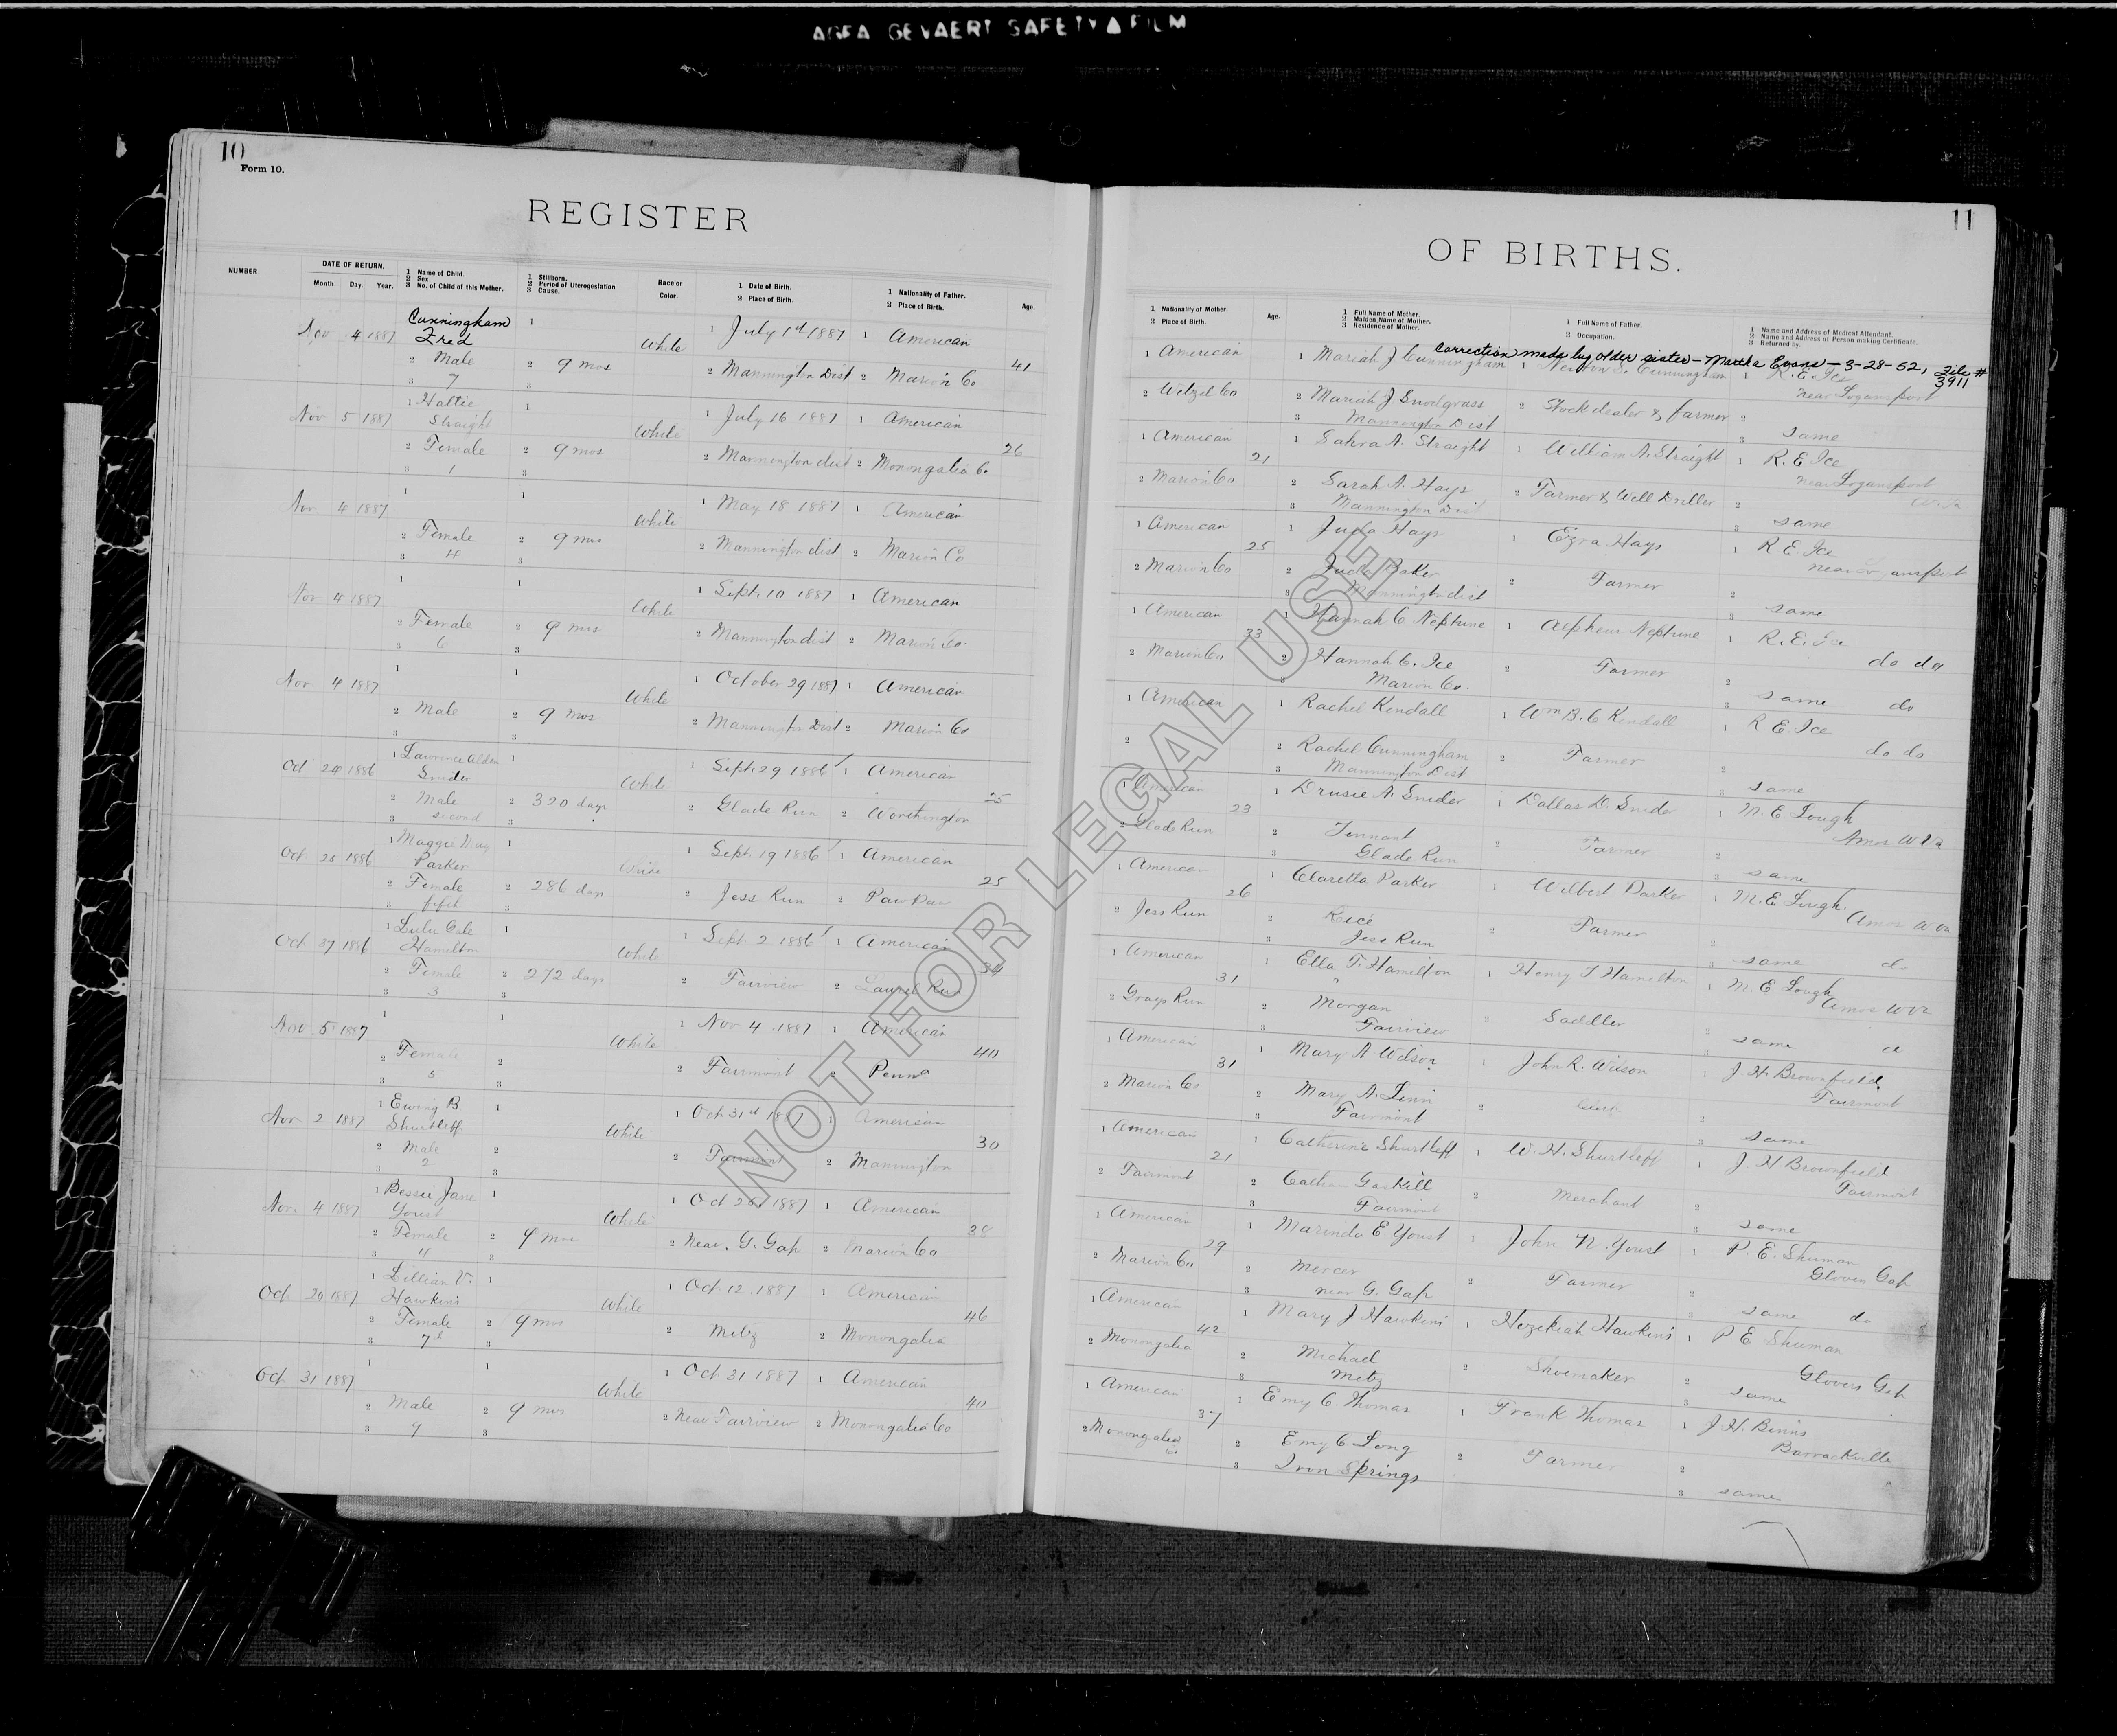 AGFA GEVAERT SAFETY▲FILM
10
Form 10.
REGISTER
NUMBER
DATE OF RETURN.
Month. Day. Year.
1 Name of Child.
2 Sex.
3 No. of Child of this Mother.
1 Stillborn.
2 Period of Uterogestation
3 Cause.
Race or
Color.
1 Date of Birth.
2 Place of Birth.
1 Nationality of Father.
2 Place of Birth.
Age.
Cunningham
Nov 4 1887 Fred 1 White 1 July 1st 1887 1 American
2 Male 2 9 mos 2 Mannington Dist 2 Marion Co 41
3 7 3
1 Hattie 1
Nov 5 1887 Straight White 1 July 16 1887 1 American
2 Female 2 9 mos 2 Mannington dist 2 Monongalia Co 26
3 1 3
Nov 4 1887 1 1 White 1 May 18 1887 1 American
2 Female 2 9 mos 2 Mannington dist 2 Marion Co
3 4 3
Nov 4 1887 1 1 White 1 Sept. 10 1887 1 American
2 Female 2 9 mos 2 Mannington dist 2 Marion Co
3 6 3
Nov 4 1887 1 1 White 1 October 29 1887 1 American
2 Male 2 9 mos 2 Mannington Dist 2 Marion Co
3 3
1 Lawrence Alden 1
Oct 24 1886 Snider White 1 Sept. 29 1886 1 American
2 Male 2 320 days 2 Glade Run 2 Worthington 25
3 second 3
1 Maggie May 1
Oct 25 1886 Parker White 1 Sept. 19 1886 1 American
2 Female 2 286 days 2 Jess Run 2 Paw Paw 25
3 fifth 3
1 Lulu Gale 1
Oct 27 1886 Hamilton White 1 Sept 2 1886 1 American
2 Female 2 272 days 2 Fairview 2 Laurel Run 34
3 3 3
Nov 5 1887 1 1 White 1 Nov 4 1887 1 American
2 Female 2 2 Fairmont 2 Penna 40
3 5 3
1 Ewing B 1
Nov 2 1887 Shurtleff White 1 Oct 31st 1887 1 American
2 Male 2 2 Fairmont 2 Mannington 30
3 2 3
1 Bessie Jane 1
Nov 4 1887 Youst White 1 Oct 26 1887 1 American
2 Female 2 9 mos 2 Near G. Gap 2 Marion Co 38
3 4 3
1 Lillian V. 1
Oct 20 1887 Hawkins White 1 Oct. 12. 1887 1 American
2 Female 2 9 mos 2 Metz 2 Monongalia 46
3 7th 3
Oct 31 1887 1 1 White 1 Oct 31 1887 1 American
2 Male 2 9 mos 2 Near Fairview 2 Monongalia Co 40
3 9 3
11
OF BIRTHS.
1 Nationality of Mother.
2 Place of Birth.
Age.
1 Full Name of Mother.
2 Maiden Name of Mother.
3 Residence of Mother.
1 Full Name of Father.
2 Occupation.
1 Name and Address of Medical Attendant.
2 Name and Address of Person making Certificate.
3 Returned by.
Correction made by older sister - Martha Evans - 3-28-52, File # 3911
1 American 1 Mariah J Cunningham 1 Newton S. Cunningham 1 R. E. Ice
near Logansport
2 Wetzel Co 2 Mariah J Snodgrass 2 Stock dealer & farmer 2
3 Mannington Dist 3 same
1 American 21 1 Sahra A. Straight 1 William A. Straight 1 R. E Ice
near Logansport
2 Marion Co 2 Sarah A. Hays 2 Farmer & Well Driller 2 W. Va
3 Mannington Dist 3 same
1 American 25 1 Juda Hays 1 Ezra Hays 1 R E. Ice
near Logansport
2 Marion Co 2 Juda Baker 2 Farmer 2
3 Mannington dist 3 same
1 American 33 1 Hannah C Neptune 1 Alpheus Neptune 1 R. E. Ice
do do
2 Marion Co 2 Hannah C. Ice 2 Farmer 2
3 Marion Co. 3 same do
1 American 1 Rachel Kendall 1 Wm B. C Kendall 1 R E. Ice
do do
2 2 Rachel Cunningham 2 Farmer 2
3 Mannington Dist 3 same
1 American 23 1 Drusie A. Snider 1 Dallas D. Snider 1 M. E Lough
Amos W Va
2 Glade Run 2 Tennant 2 Farmer 2
3 Glade Run 3 same
1 American 26 1 Claretta Parker 1 Wilbert Parker 1 M. E Lough
Amos W Va
2 Jess Run 2 Rice 2 Farmer 2
3 Jess Run 3 same do
1 American 31 1 Ella F. Hamilton 1 Henry F Hamilton 1 M. E Lough
Amos W Va
2 Grays Run 2 Morgan 2 Saddler 2
3 Fairview 3 same
1 American 31 1 Mary A Wilson 1 John R. Wilson 1 J. H. Brownfield
Fairmont
2 Marion Co 2 Mary A. Linn 2 Clerk 2
3 Fairmont 3 same
1 American 21 1 Catherine Shurtleff 1 W. H. Shurtleff 1 J. H Brownfield
Fairmont
2 Fairmont 2 Gaskill 2 Merchant 2
3 Fairmont 3 same
1 American 29 1 Marinda E Youst 1 John N. Youst 1 P. E. Shuman
Glovers Gap
2 Marion Co 2 Mercer 2 Farmer 2
3 near G. Gap 3 same do
1 American 42 1 Mary J Hawkins 1 Hezekiah Hawkins 1 P E Shuman
Glovers Gap
2 Monongalia 2 Michael 2 Shoemaker 2
3 Metz 3 same
1 American 37 1 Emy C. Thomas 1 Frank Thomas 1 J. H. Binns
Barrackville
2 Monongalia Co 2 Emy C Long 2 Farmer 2
3 Iron Springs 3 same
NOT FOR LEGAL USE